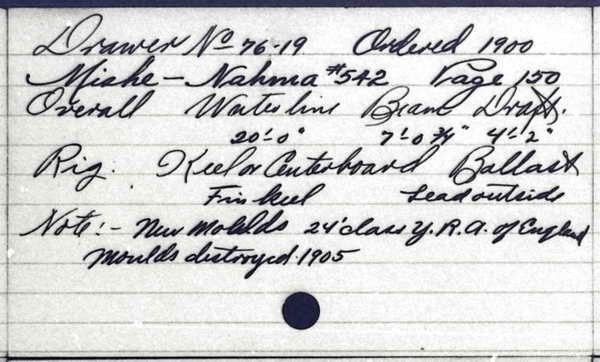 Drawer No 76-19 Ordered 1900
Mishe-Nahma #542 Page 150
Overall Waterline Beam Draft.
20'-0" 7'-0 3/4" 4'-2"
Rig: Keel or Centerboard Ballast
Fin keel Lead outside
Note:- New Moulds 24' class Y.R.A. of England
Moulds destroyed 1905